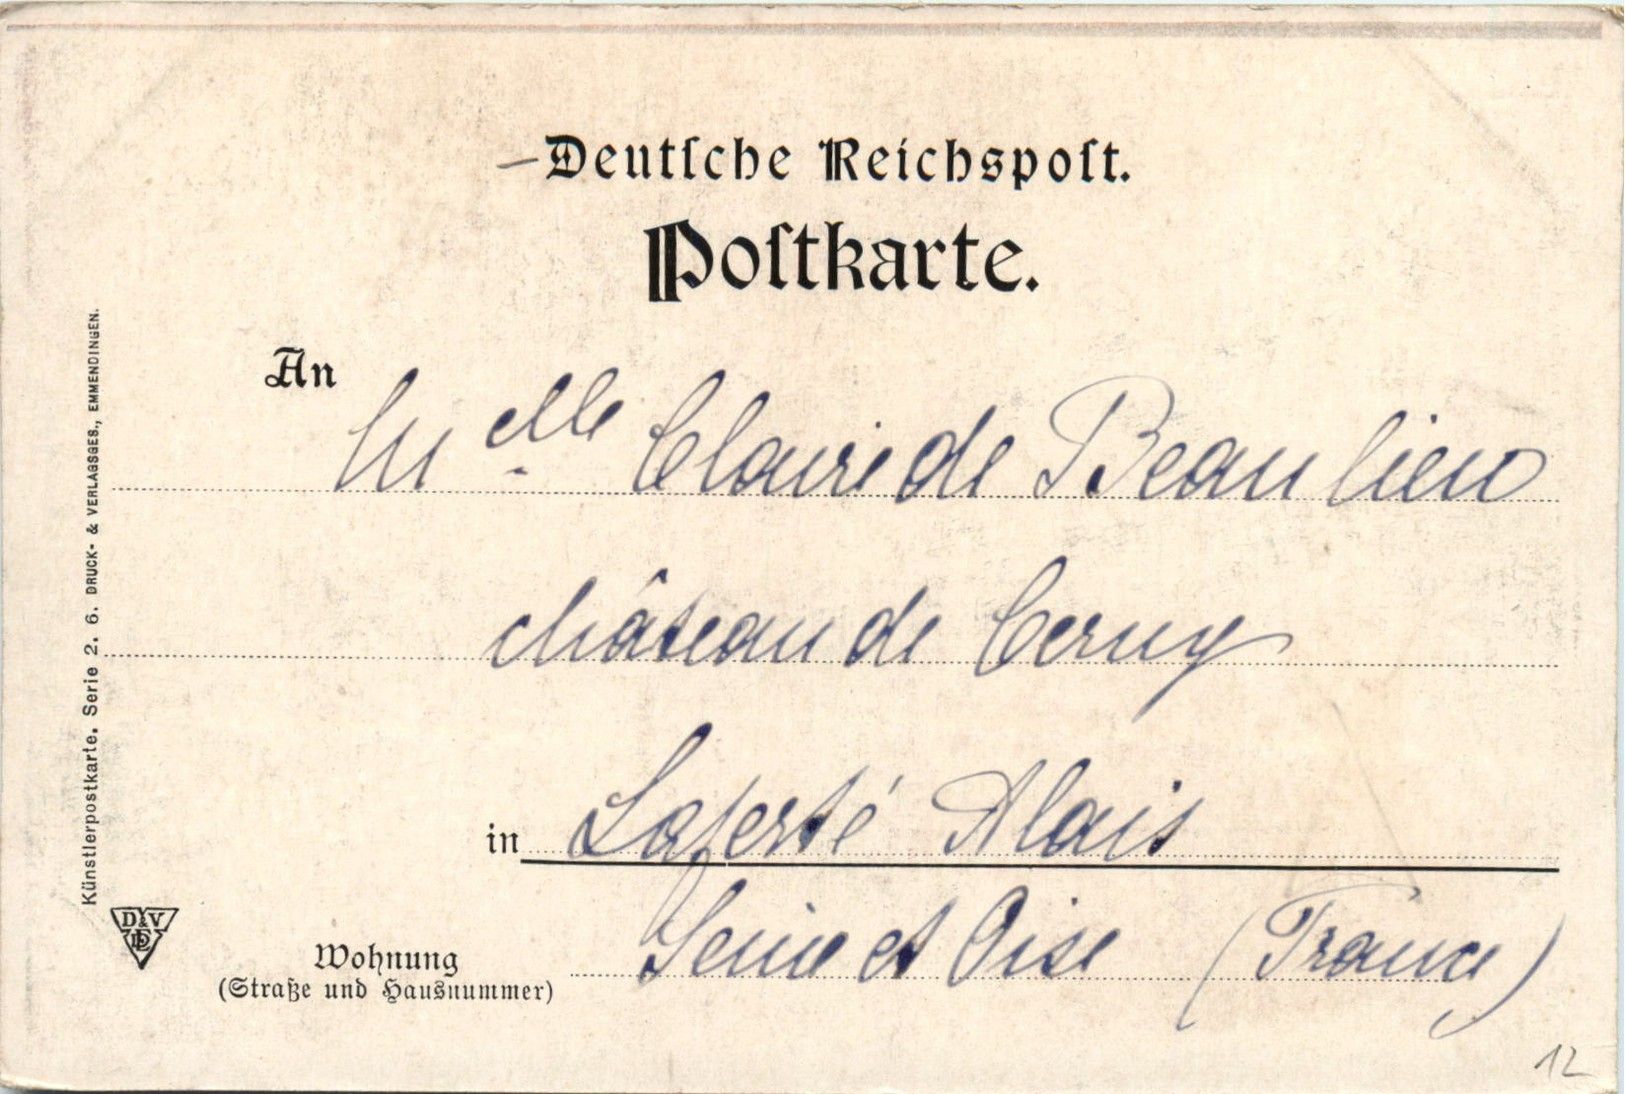 Deutsche Reichspost.
Postkarte.
An
Melle Claire de Beaulieu
château de Cerny
in Laferté Alais
Wohnung
(Straße und Hausnummer)
Seine et Oise (France)
Künstlerpostkarte. Serie 2. 6. DRUCK- & VERLAGSGES., EMMENDINGEN.
D&V
E
12